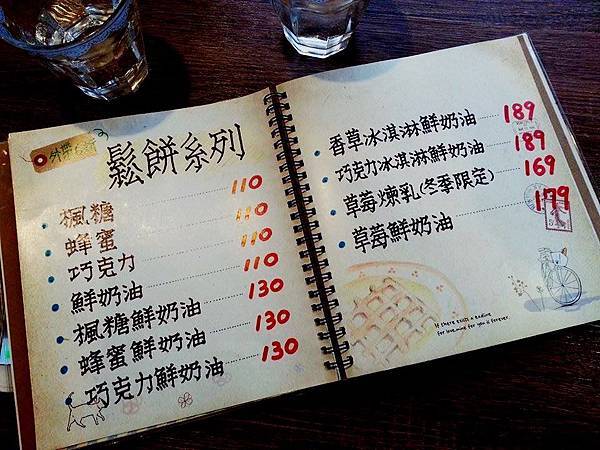 鬆餅系列
楓糖 110
蜂蜜 110
巧克力 110
鮮奶油 110
楓糖鮮奶油 130
蜂蜜鮮奶油 130
巧克力鮮奶油 130
香草冰淇淋鮮奶油 189
巧克力冰淇淋鮮奶油 189
草莓煉乳(冬季限定) 169
草莓鮮奶油 179
If there exists a
for love, mine for you is forever.